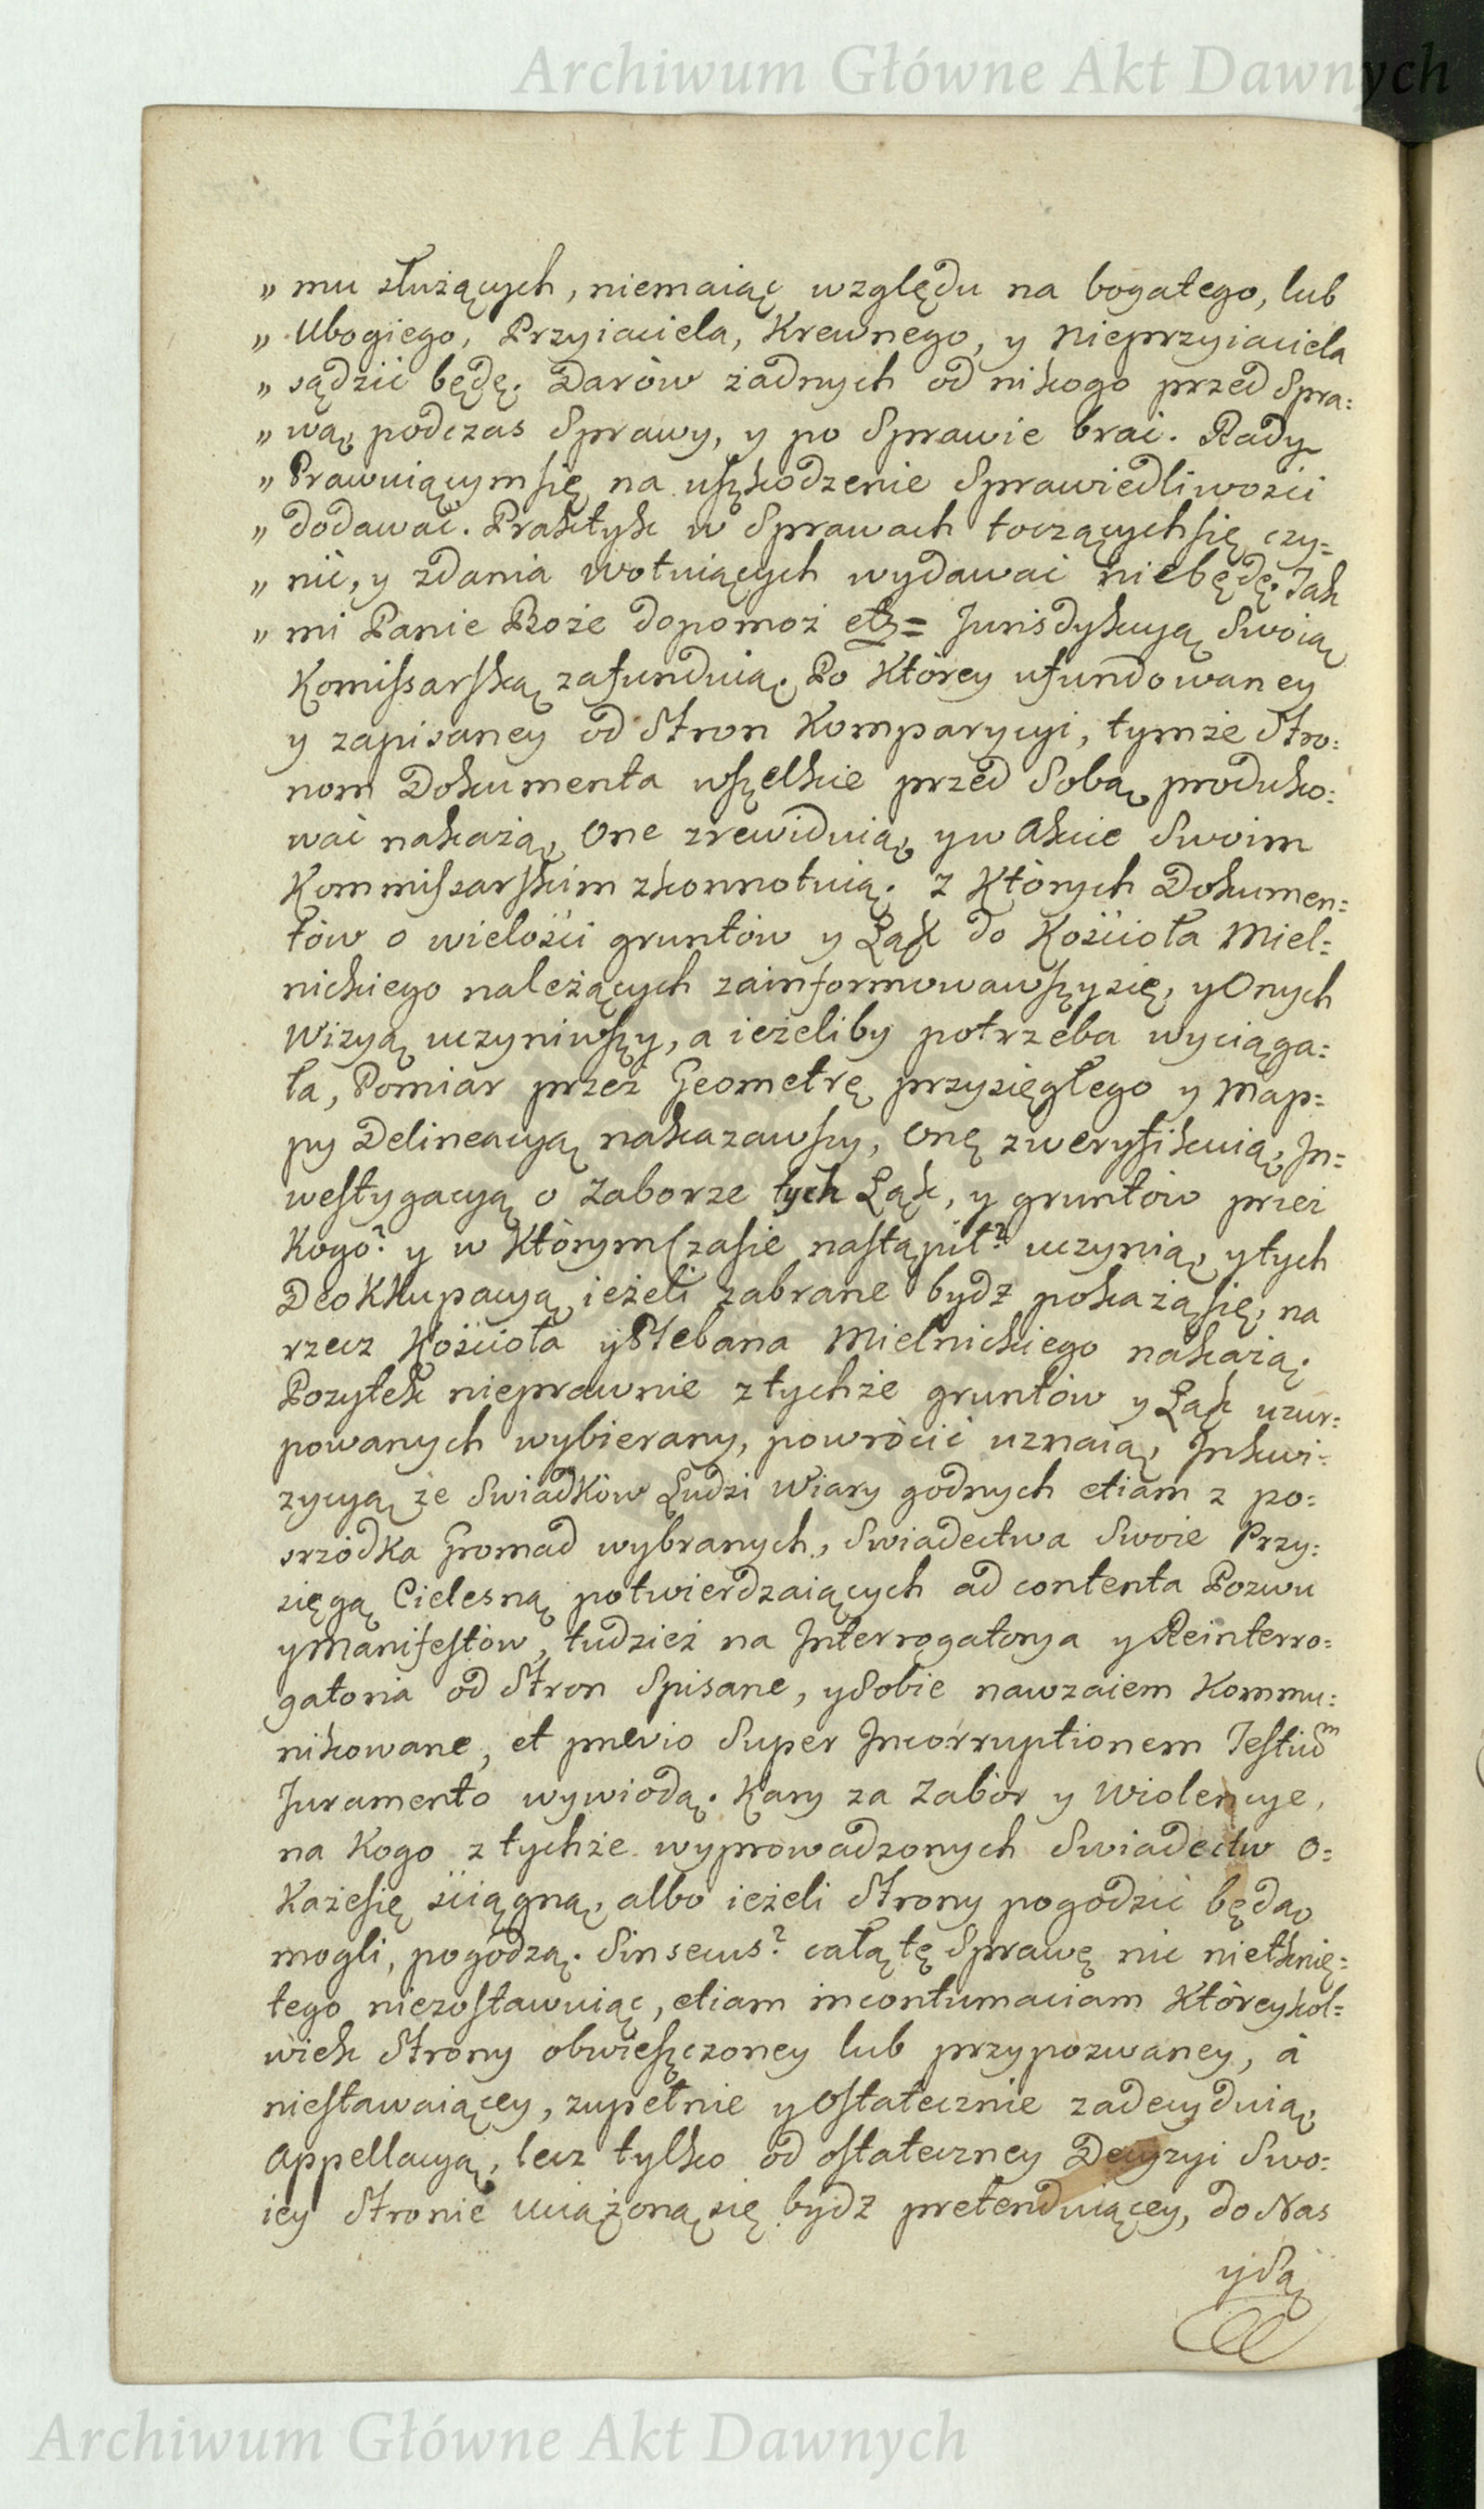 Archiwum Główne Akt Dawnych
„ mu służących, niemaiąc względu na bogatego, lub
„ Ubogiego, Przyiaciela, Krewnego, y Nieprzyiaciela
„ sądzić będę. Darów żadnych od nikogo przed Spra:
„ wą, podczas Sprawy, y po Sprawie brać. Rady
„ Prawuiącym się na uszkodzenie Sprawiedliwości
„ dodawać. Praktyk w Sprawach toczących się czy=
„ nić, y zdania wotuiących wydawać niebędę. Tak
„ mi Panie Boże dopomoż etz= Jurisdykcyą Swoią
Komissarską zafunduią. Po Którey ufundowaney
y zapisaney od Stron Komparycyi, tymże Stro:
nom Dokumenta wszelkie przed Sobą produko:
wać nakażą, One zrewiduią, y w Akcie Swoim
Kommissarskim zkonnotuią. z Których Dokumen:
tów o wielości gruntów y Łąk do Kościoła Miel=
nickiego należących zainformowawszy się, y Onych
Wizyą uczyniwszy, a ieżeliby potrzeba wyciąga:
ła, Pomiar przez Geometrę przysięgłego y Map=
py Delineacyą nakazawszy, Onę zweryfikuią, In=
westygacyą o Zaborze tych Łąk, y gruntów przez
Kogo? y w Którym Czasie nastąpił? uczynią, y tych
DeoKKupacyą ieżeli zabrane bydź pokażą się, na
rzecz Kościoła y Plebana Mielnickiego nakażą.
Pożytek nieprawnie z tychże gruntów y Łąk uzur=
powanych wybierany, powrócić uznaią, Inkwi=
zycyą ze Swiadków Ludzi Wiary godnych etiam z po=
srzodka Gromad wybranych, Swiadectwa Swoie Przy=
sięgą Cielesną potwierdzaiących ad contenta Pozwu
y Manifestów, tudzież na Interrogatorya y Reinterro=
gatoria od Stron Spisane, y Sobie nawzaiem Kommu=
nikowane, et prævio Super Incorruptionem Testiu͠m
Juramento wywiodą. Kary za Zabór y Wiolencye,
na Kogo z tychże wyprowadzonych Swiadectw o=
Każe się sciągną, albo ieżeli Strony pogodzić będą
mogli, pogodzą. Sin secus? całą tę Sprawę nic nietknię=
tego niezostawuiąc, etiam in contumaciam Którey kol=
wiek Strony obwieszczoney lub przypozwaney, à
niestawaiącey, zupełnie y Ostatecznie zadecyduią,
Appellacyą, lecz tylko od ostateczney Decyzyi Swo:
iey Stronie uciążoną się bydź pretenduiącey, do Nas
y Są
Archiwum Główne Akt Dawnych